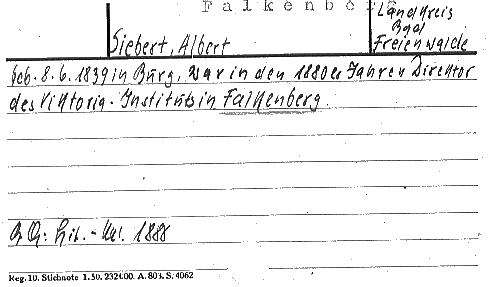 Falkenberg
Landkreis
Bad
Freienwalde
Siebert, Albert
Geb. 8.6.1839 in Burg, war in den 1880er Jahren Direktor
des Viktoria-Instituts in Falkenberg.
Lit.-Kal. 1888
Reg. 10. Stichnote 1. 50. 2324.00. A. 803. S. 4062